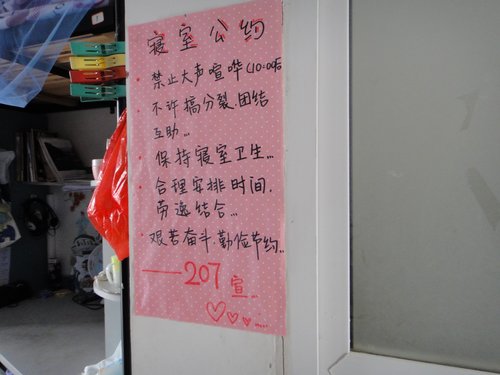 寝室公约
· 禁止大声喧哗(10:00后
· 不许搞分裂.团结
互助...
· 保持寝室卫生...
· 合理安排时间,
劳逸结合...
· 艰苦奋斗.勤俭节约...
——207宣...